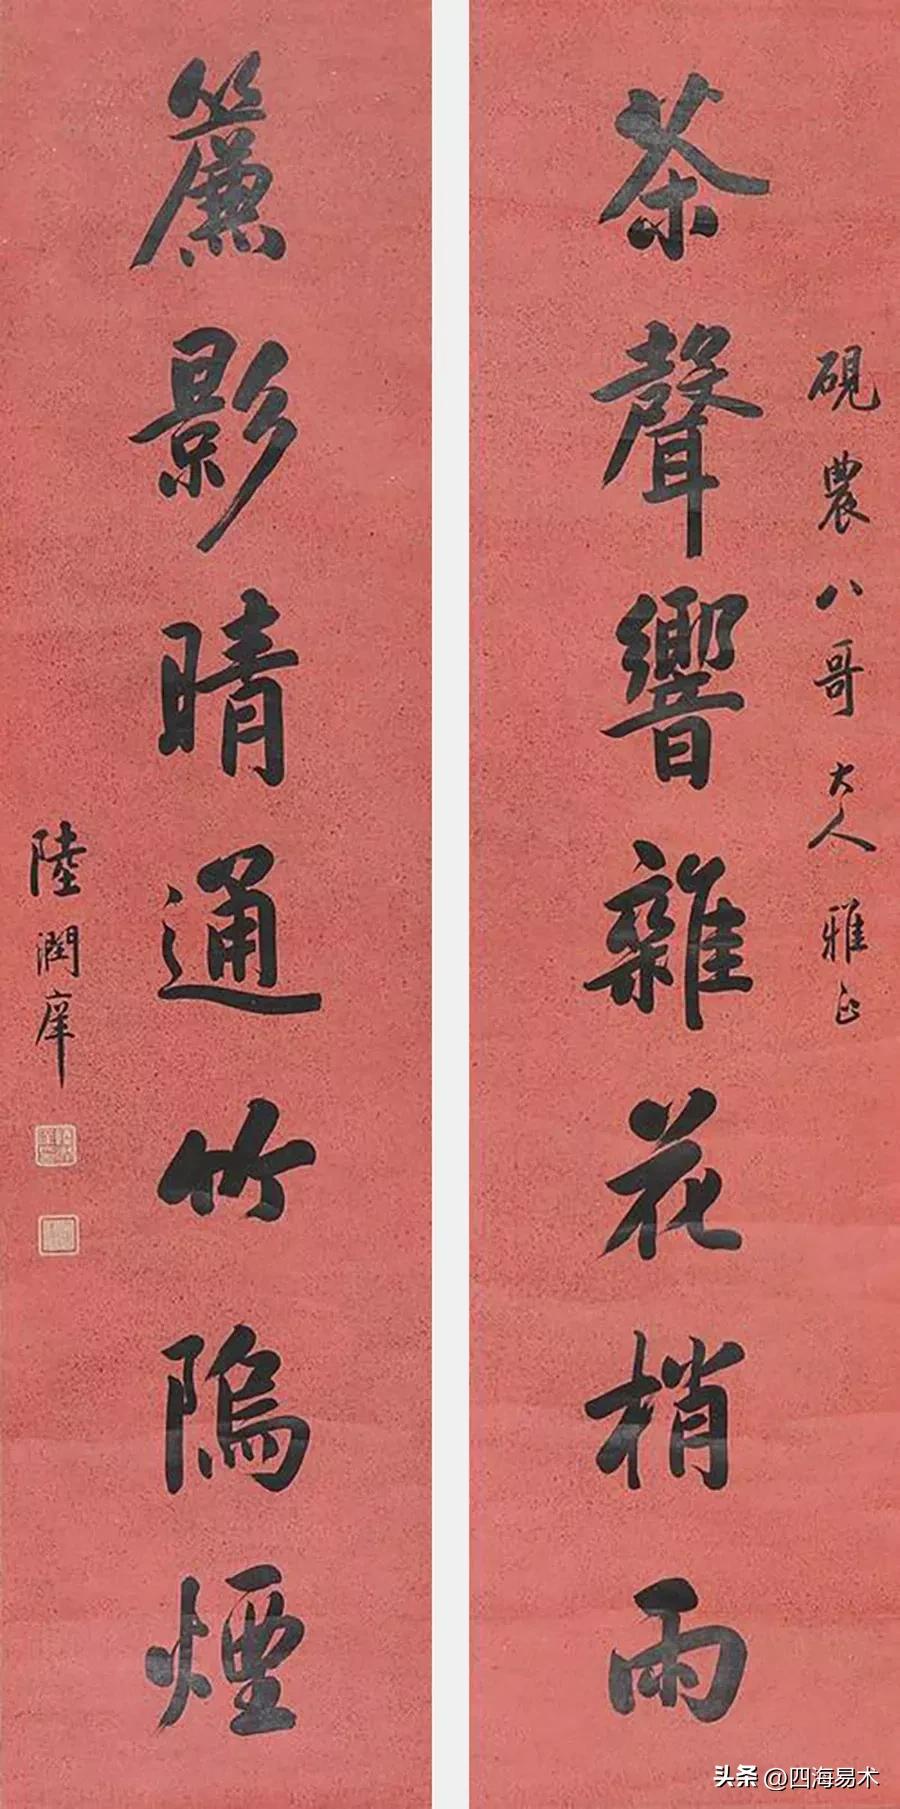 硯農八哥大人雅正
茶聲響雜花梢雨
簾影晴通竹隖煙
陸潤庠
头条 @四海易术